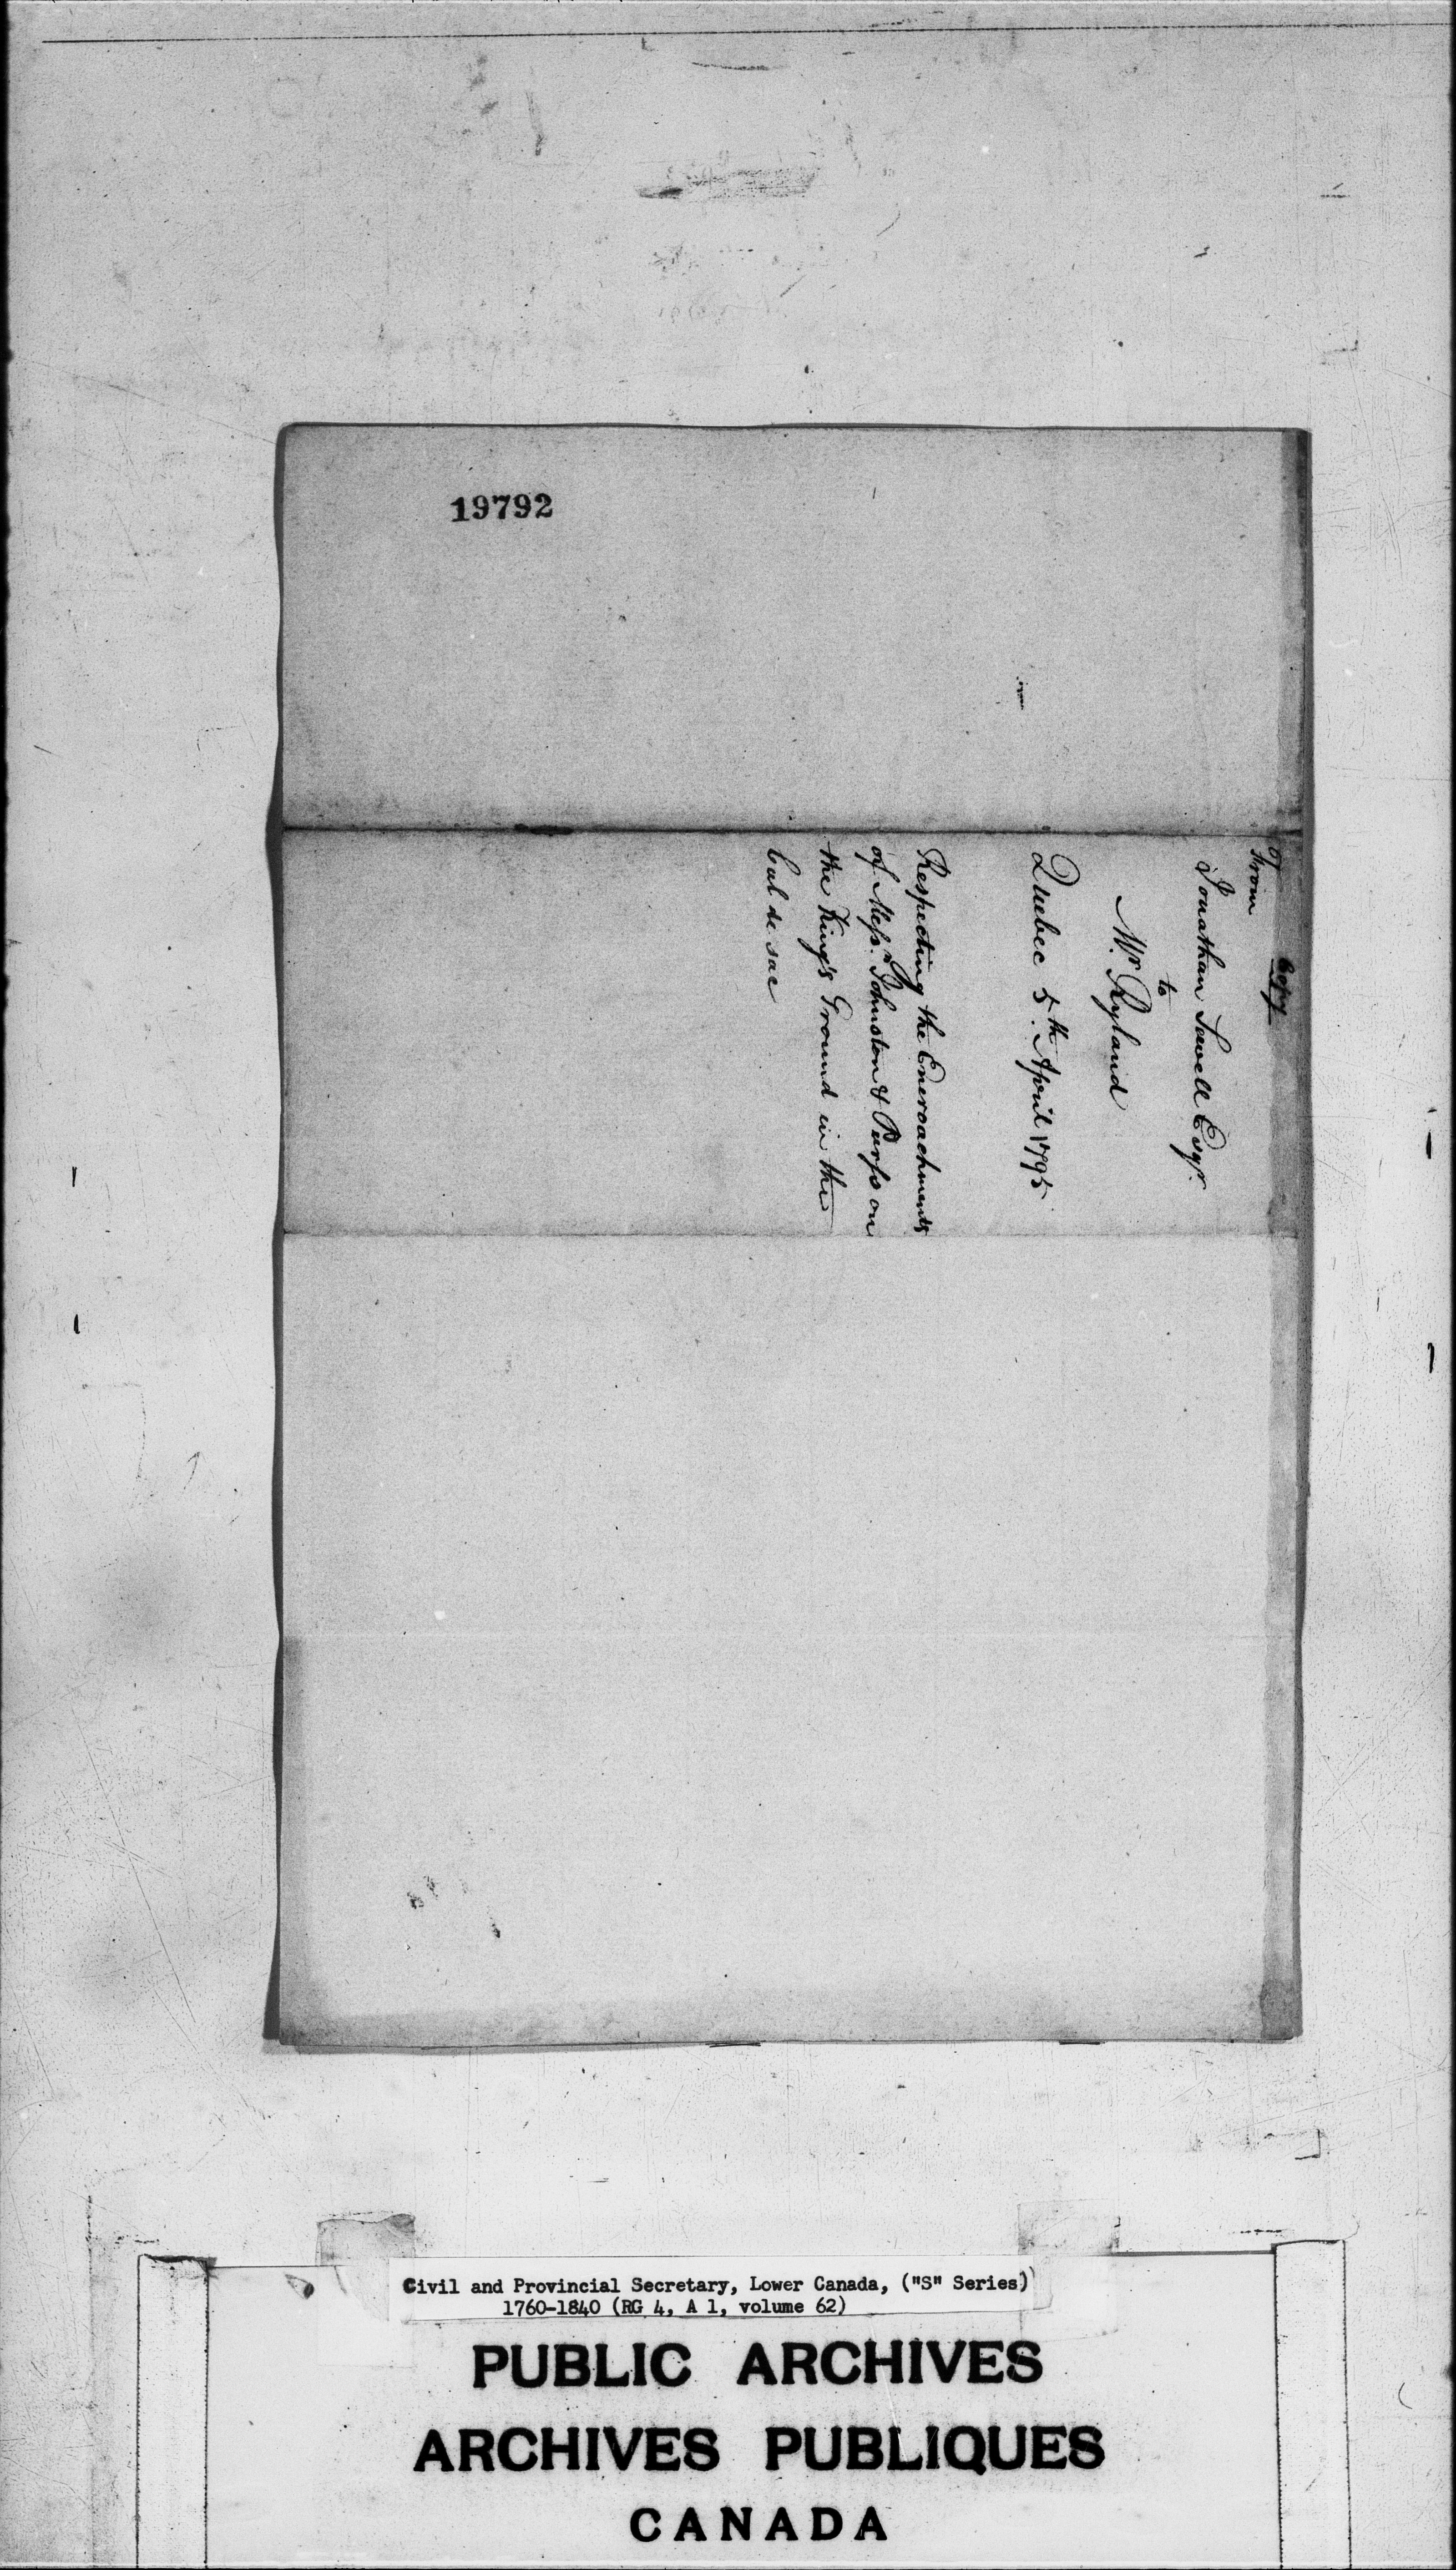 19792
Copy
From
Jonathan Sewell Esqr.
to
Mr. Ryland
Quebec 5th. April 1795
Respecting the Encroachments
of Messrs. Johnston & Purss on
the King's Ground in the
Cul de sac
Civil and Provincial Secretary, Lower Canada, ("S" Series)
1760-1840 (RG 4, A 1, volume 62)
PUBLIC ARCHIVES
ARCHIVES PUBLIQUES
CANADA